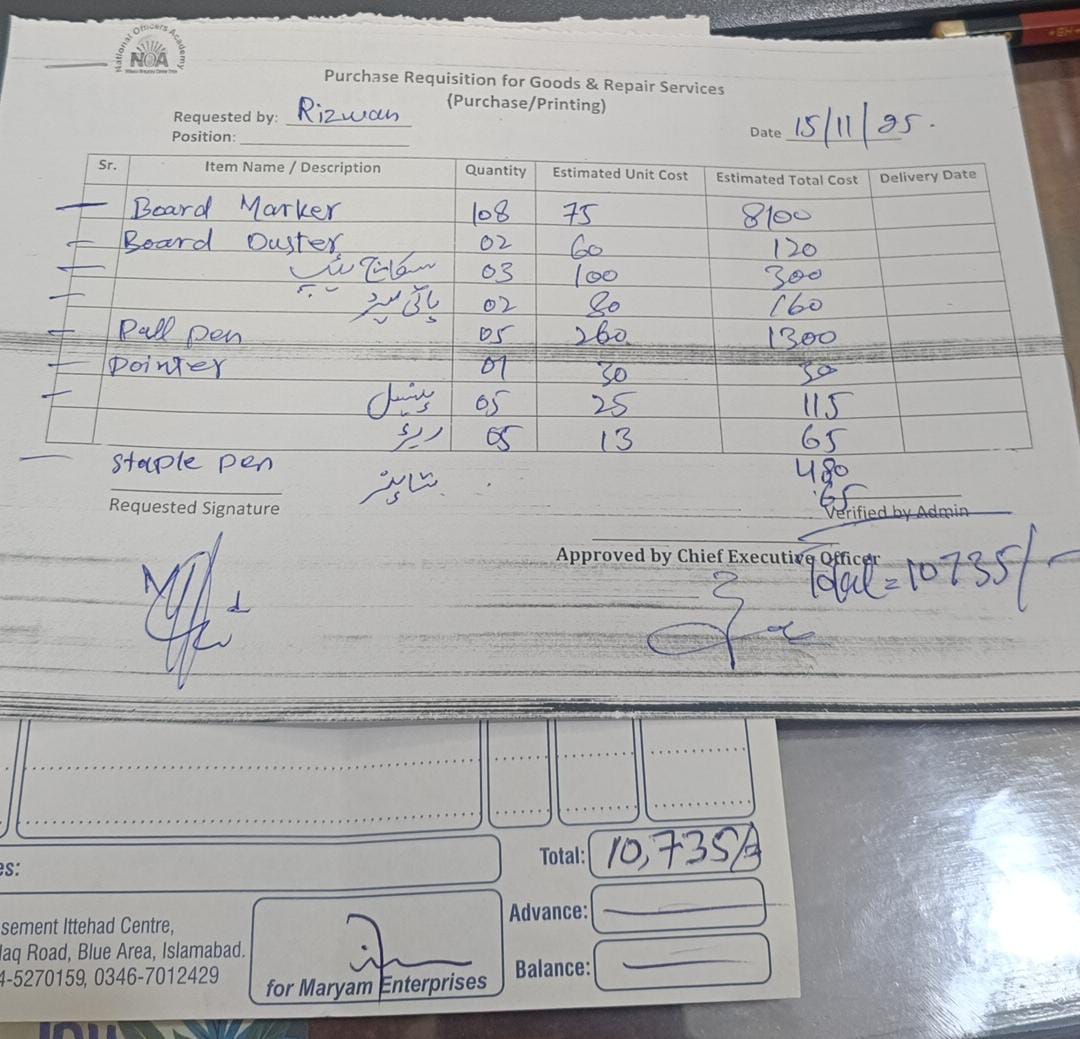 National Officers Academy
NOA
Purchase Requisition for Goods & Repair Services
(Purchase/Printing)
Requested by: Rizwan
Date 15/11/25.
Position:
Sr. Item Name / Description Quantity Estimated Unit Cost Estimated Total Cost Delivery Date
Board Marker 108 75 8100
Board Duster 02 60 120
سکاچ ٹیپ 03 100 300
02 80 160
Ball pen 05 260 1300
Pointer 01 30 30
پینسل 05 25 115
ربڑ 05 13 65
Staple pen 480
شاپنر 65
Requested Signature
Verified by Admin
Approved by Chief Executive Officer
Total = 10735/-
Total: 10,735/-
es:
Advance:
sement Ittehad Centre,
laq Road, Blue Area, Islamabad.
4-5270159, 0346-7012429
Balance:
for Maryam Enterprises